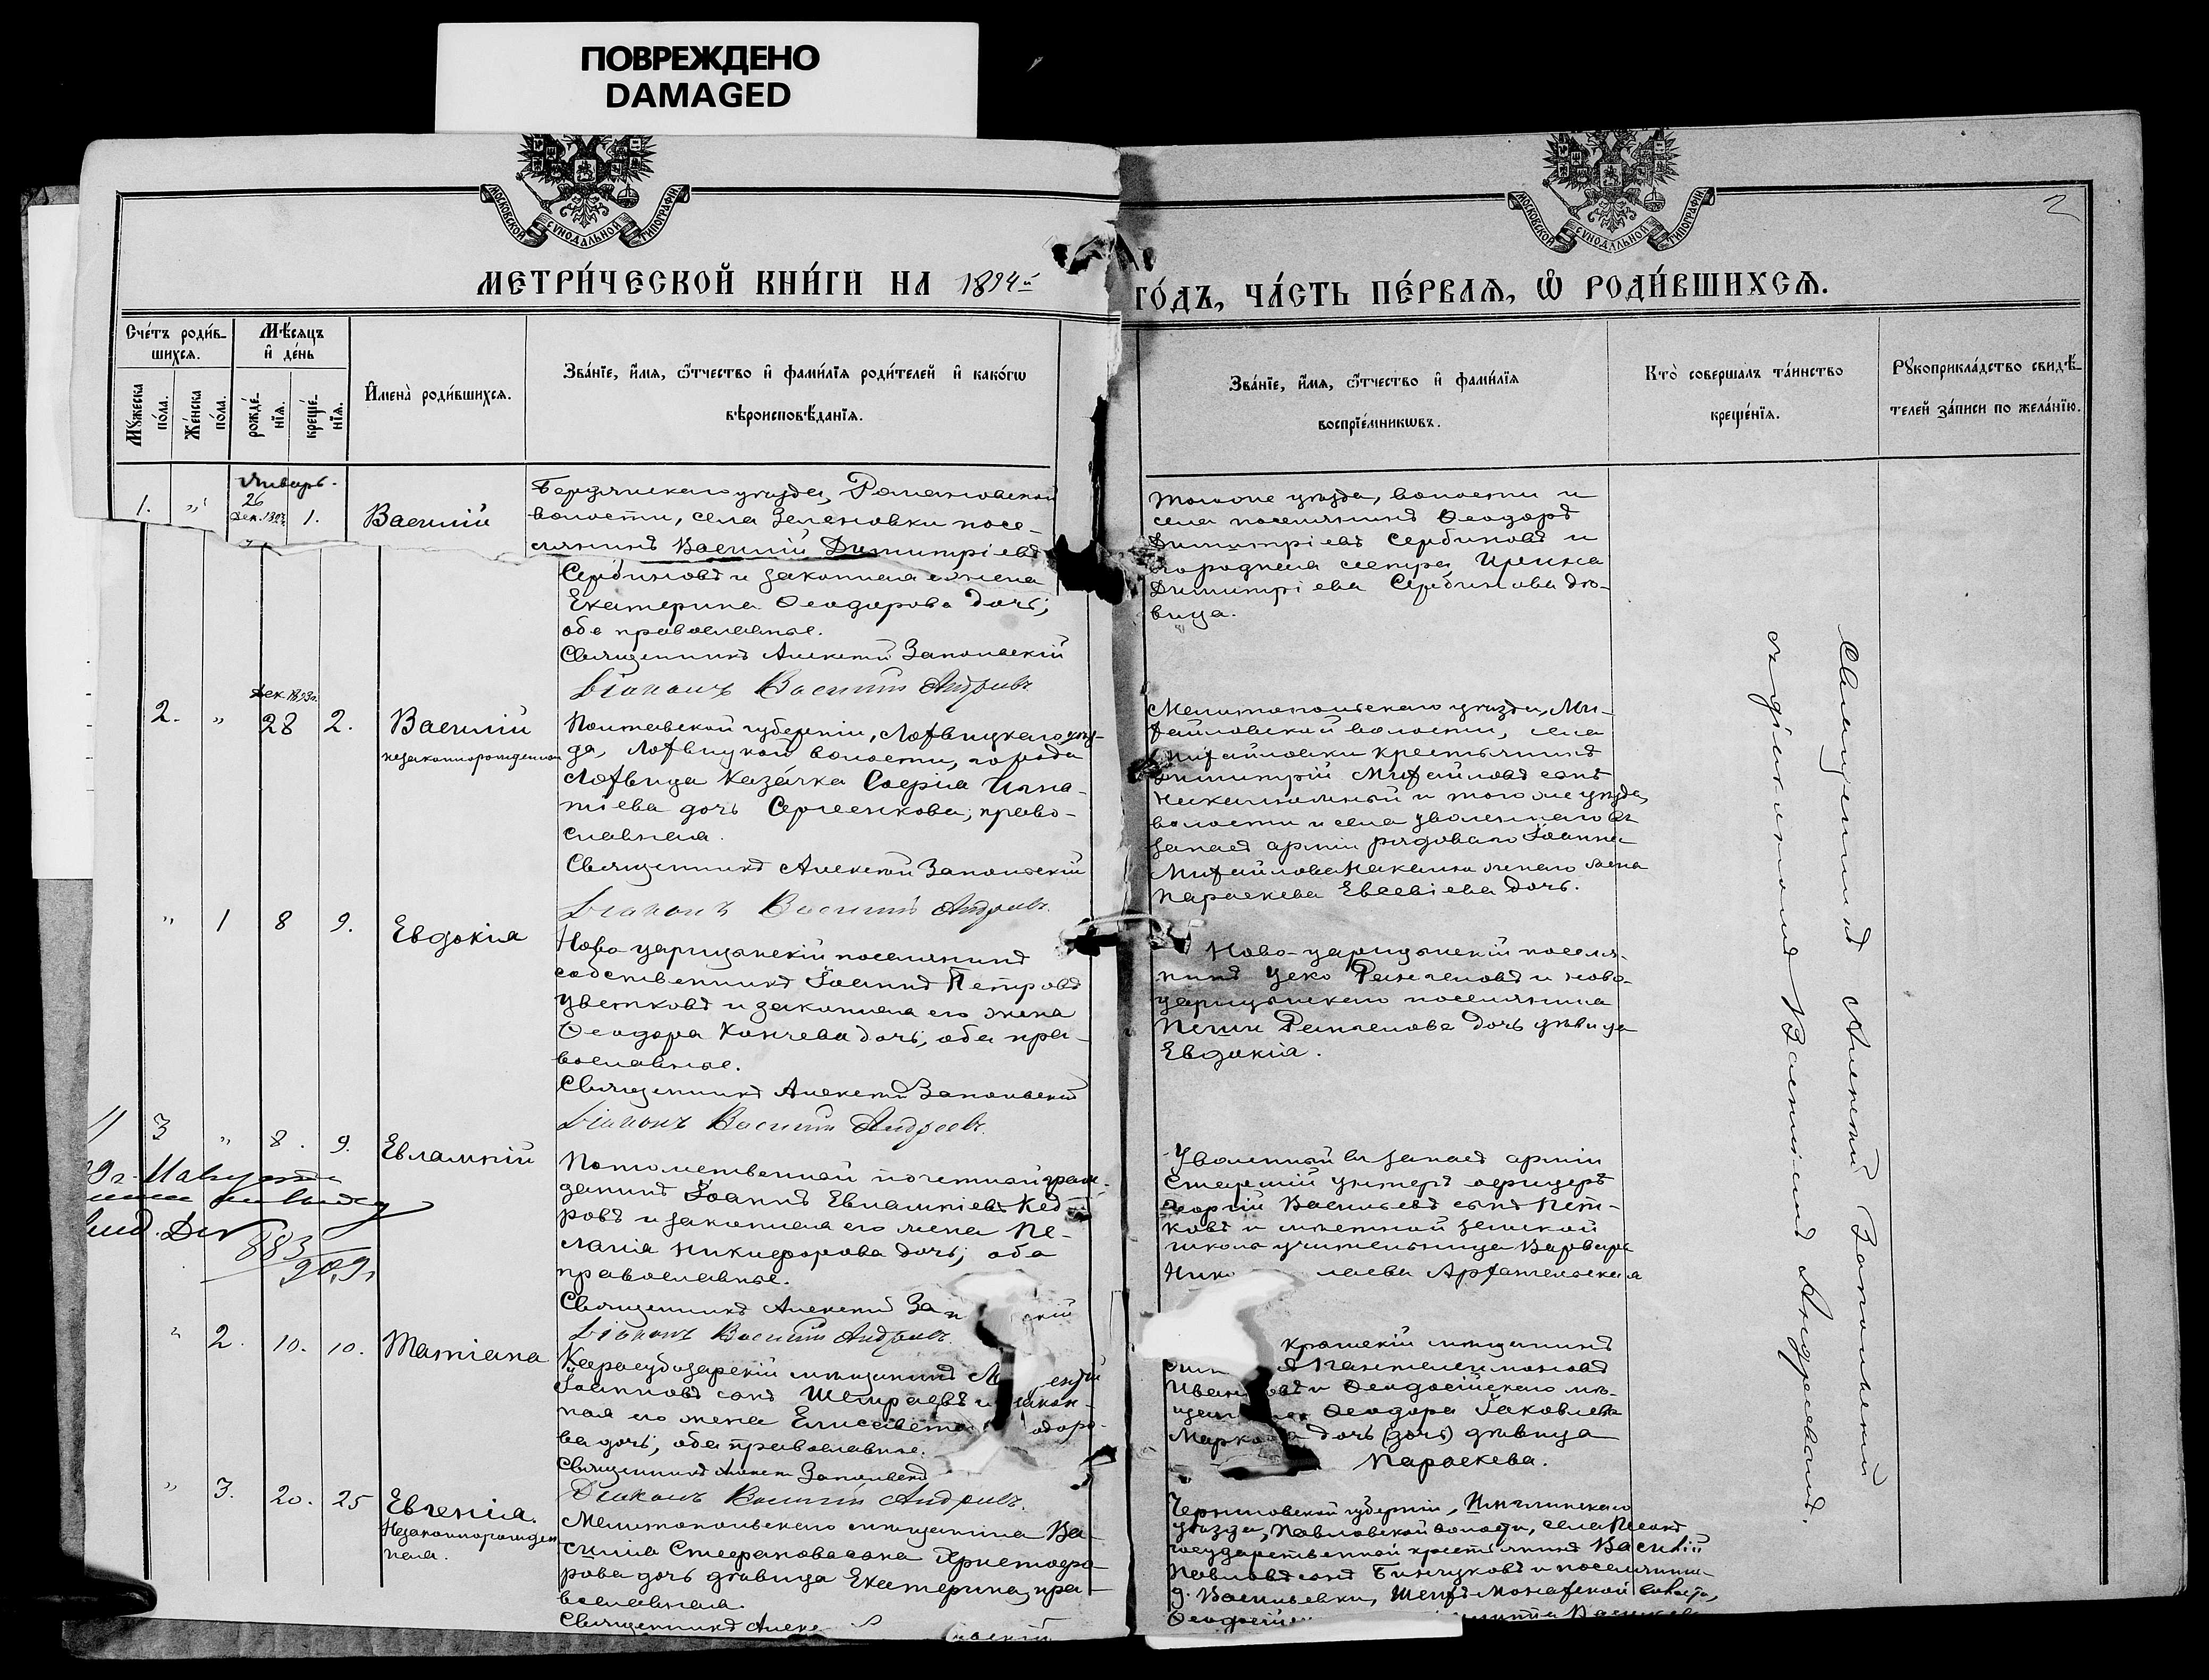 ПОВРЕЖДЕНО
DAMAGED
МОСКОВСКОЙ СѴНОДАЛЬНОЙ ТИПОГРАФІИ
МОСКОВСКОЙ СѴНОДАЛЬНОЙ ТИПОГРАФІИ
2
МЕТРИ́ЧЕСКОЙ КНИ́ГИ НА 1894й
ГО́ДЪ, ЧА́СТЬ ПЕ́РВАЯ, Ѡ҆ РОДИ́ВШИХСЯ.
Сче́тъ роди́в-
шихся.
Му́жеска по́ла.
Же́нска по́ла.
Мѣ́сяцъ
и҆ де́нь
рожде́нїя.
креще́нїя.
И҆мена̀ роди́вшихся.
Зва́нїе, и҆́мя, ѻ҆́тчество и҆ фами́лїя роди́телей и҆ како́гѡ
вѣроисповѣ́данїя.
Зва́нїе, и҆́мя, ѻ҆́тчество и҆ фами́лїя
воспрїе́мникѡвъ.
Кто̀ соверша́лъ та́инство
креще́нїя.
Рꙋкоприкла́дство свидѣ́-
телей за́писи по жела́нїю.
Январь.
1. " 26 1. Василій
Бердянскаго уѣзда, Романовской
волости, села Зеленовки посе-
лянинъ Василій Димитріевъ
Сербиновъ и законная его жена
Екатерина Ѳеодорова дочь;
оба православные.
Священникъ Алексій Запольскій
Діаконъ Василій Андреевъ
Тогоже уѣзда, волости и
села поселянинъ Ѳеодоръ
Димитріевъ Сербиновъ и
его родная сестра Ирина
Димитріева Сербинова дѣ-
вица.
Дек. 1893г.
2. " 28 2. Василій
незаконнорожденный
Полтавской губерніи, Лохвицкаго уѣз-
да, Лохвицкой волости, города
Лохвица казачка Софія Игна-
тіева дочь Сергеенкова, право-
славная.
Священникъ Алексій Запольскій
Діаконъ Василій Андреевъ
Мелитопольскаго уѣзда, Ми-
хайловской волости, села
Михайловки крестьянинъ
Димитрій Михайловъ сынъ
и тогоже уѣзда,
волости и села уволеннаго въ
запасъ арміи рядоваго Іоанна
Михайлова жена
Параскева Евсевіева дочь.
" 1 8 9. Евдокія
Ново-царицынскій поселянинъ
собственникъ Іоаннъ Петровъ
Цвѣтковъ и законная его жена
Ѳеодора Канчева дочь, оба пра-
вославные.
Священникъ Алексій Запольскій
Діаконъ Василій Андреевъ.
Ново-царицынскій поселя-
нинъ Цеко Рангеловъ и ново-
царицынскаго поселянина
Рангелова дочь дѣвица
Евдокія.
3 " 8. 9. Евлампій
Потомственной почетной граж-
данинъ Іоаннъ Евлампіевъ Кед-
ровъ и законная его жена Пе-
лагія Никифорова дочь; оба
православные.
Священникъ Алексій Зап скій
Діаконъ Василій Андреевъ.
Уволенный въ запасъ арміи
Старшій унтеръ офицеръ
Георгій Васильевъ сынъ Пет-
ковъ и мѣстной земской
школы учительница Варвара
Нико лаева Архангельская
883
909
" 2. 10. 10. Татіана
Карасубазарскій мѣщанинъ
Іоанновъ сынъ и закон-
ная его жена Елисавета одоро-
ва дочь; оба православные.
Священникъ Алексій Запольскій
Діаконъ Василій Андреевъ.
мѣщанинъ
Пантелеимоновъ
Иван овъ и Ѳеодосійскаго мѣ-
щан Ѳеодора Іаковлева
Марко дочь (дочь) дѣвица
Параскева.
" 3. 20. 25 Евгенія.
Незаконнорожден
ная.
Мелитопольскаго мѣщанина Ва-
силія Стефанова сына Христофо-
рова дочь дѣвица Екатерина, пра-
вославная.
Священникъ Алекс
Черниговской губерніи, Мглинскаго
уѣзда, Павловской волости, села
государственной крестьянинъ Василій
Павловъ сынъ
д. Васильевки,
Священникъ Алексій Запольскій
съ діакономъ Василіемъ Андреевымъ.